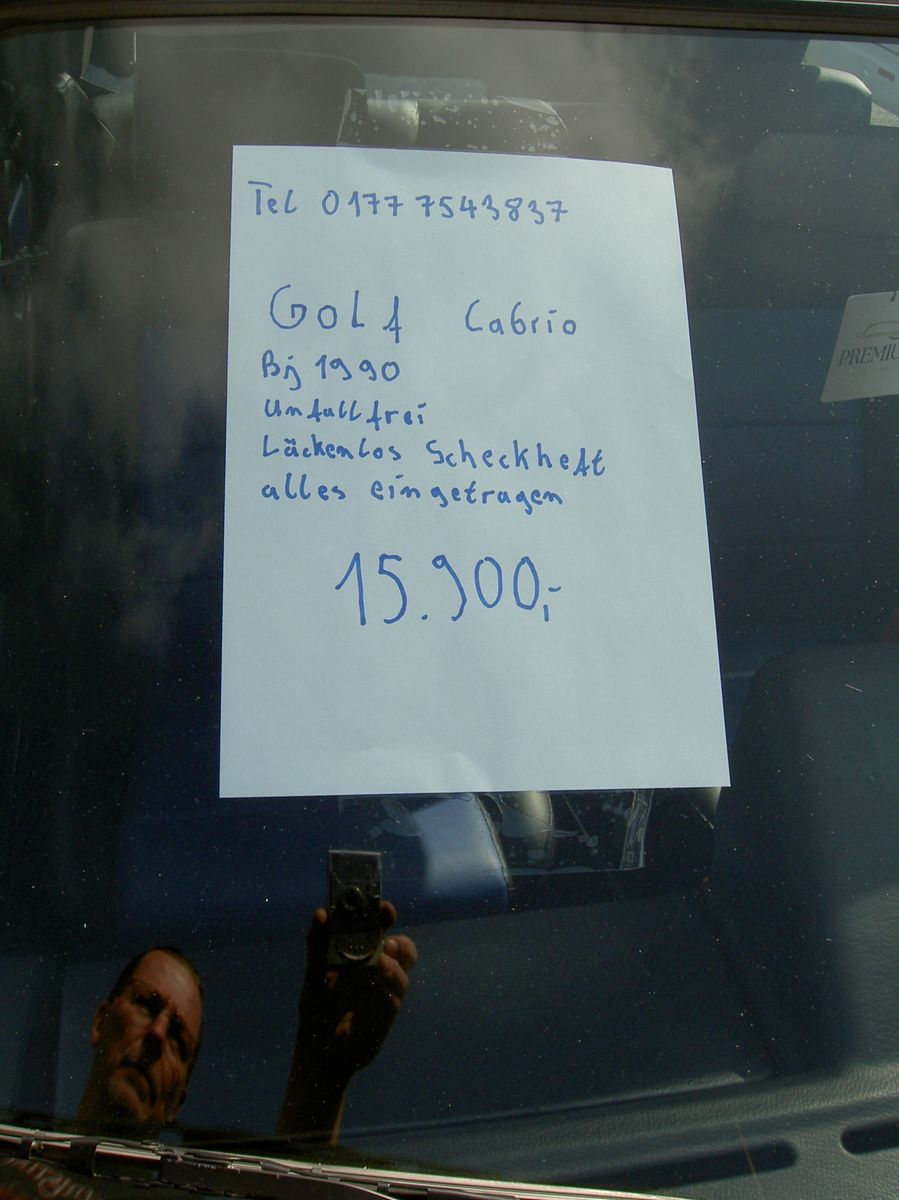 Tel 0177 7543837
Golf Cabrio
Bj 1990
Unfallfrei
Läckenlos Scheckheft
alles eingetragen
15.900,-